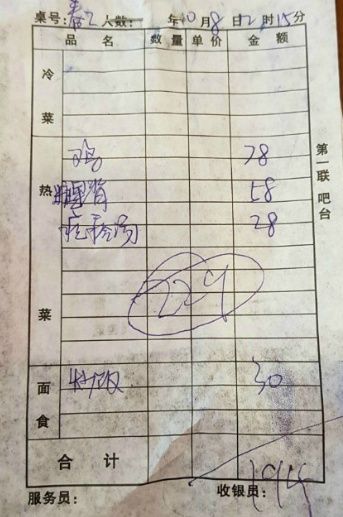 桌号：春2 人数： 年10月8日12时15分
品名 数量 单价 金额
冷菜
鸡 78
热菜
58
疙瘩汤 28
229
面食
炒饭 30
合计 194
服务员： 收银员：
第一联 吧台